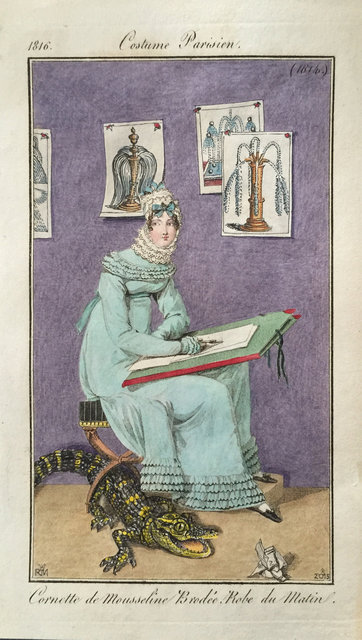 1816.
Costume Parisien.
(1574.)
RM
2015
Cornette de Mousseline Brodée. Robe du Matin.